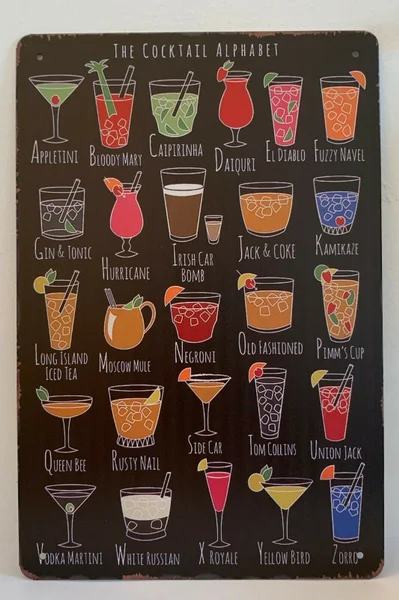 The Cocktail Alphabet
Appletini
Bloody Mary
Caipirinha
Daiquri
El Diablo
Fuzzy Navel
Gin & Tonic
Hurricane
Irish Car
Bomb
Jack & Coke
Kamikaze
Long Island
Iced Tea
Moscow Mule
Negroni
Old Fashioned
Pimm's Cup
Queen Bee
Rusty Nail
Side Car
Tom Collins
Union Jack
Vodka Martini
White Russian
X Royale
Yellow Bird
Zorro